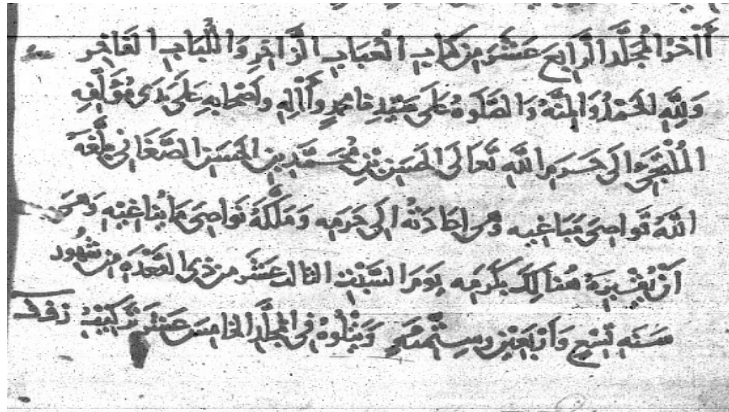 آخر المجلد الرابع عشر من كتاب العباب الزاخر واللباب الفاخر
ولله الحمد والمنة والصلوة على سيدنا محمد وآله وأصحابه على يدى مؤلفه
الملتجئ الى حرم الله تعالى الحسن بن محمد بن الحسن الصغانى بلغه
الله نواصى مباغيه وهى اعادته الى حرمه وملكه نواصى ما يناغيه وهى
ان يقبره هنالك بكرمه يوم السبت الثالث عشر من ذى القعدة من شهور
سنه تسع واربعين وستمئه ويتلوه فى المجلد الخامس عشر تركيب